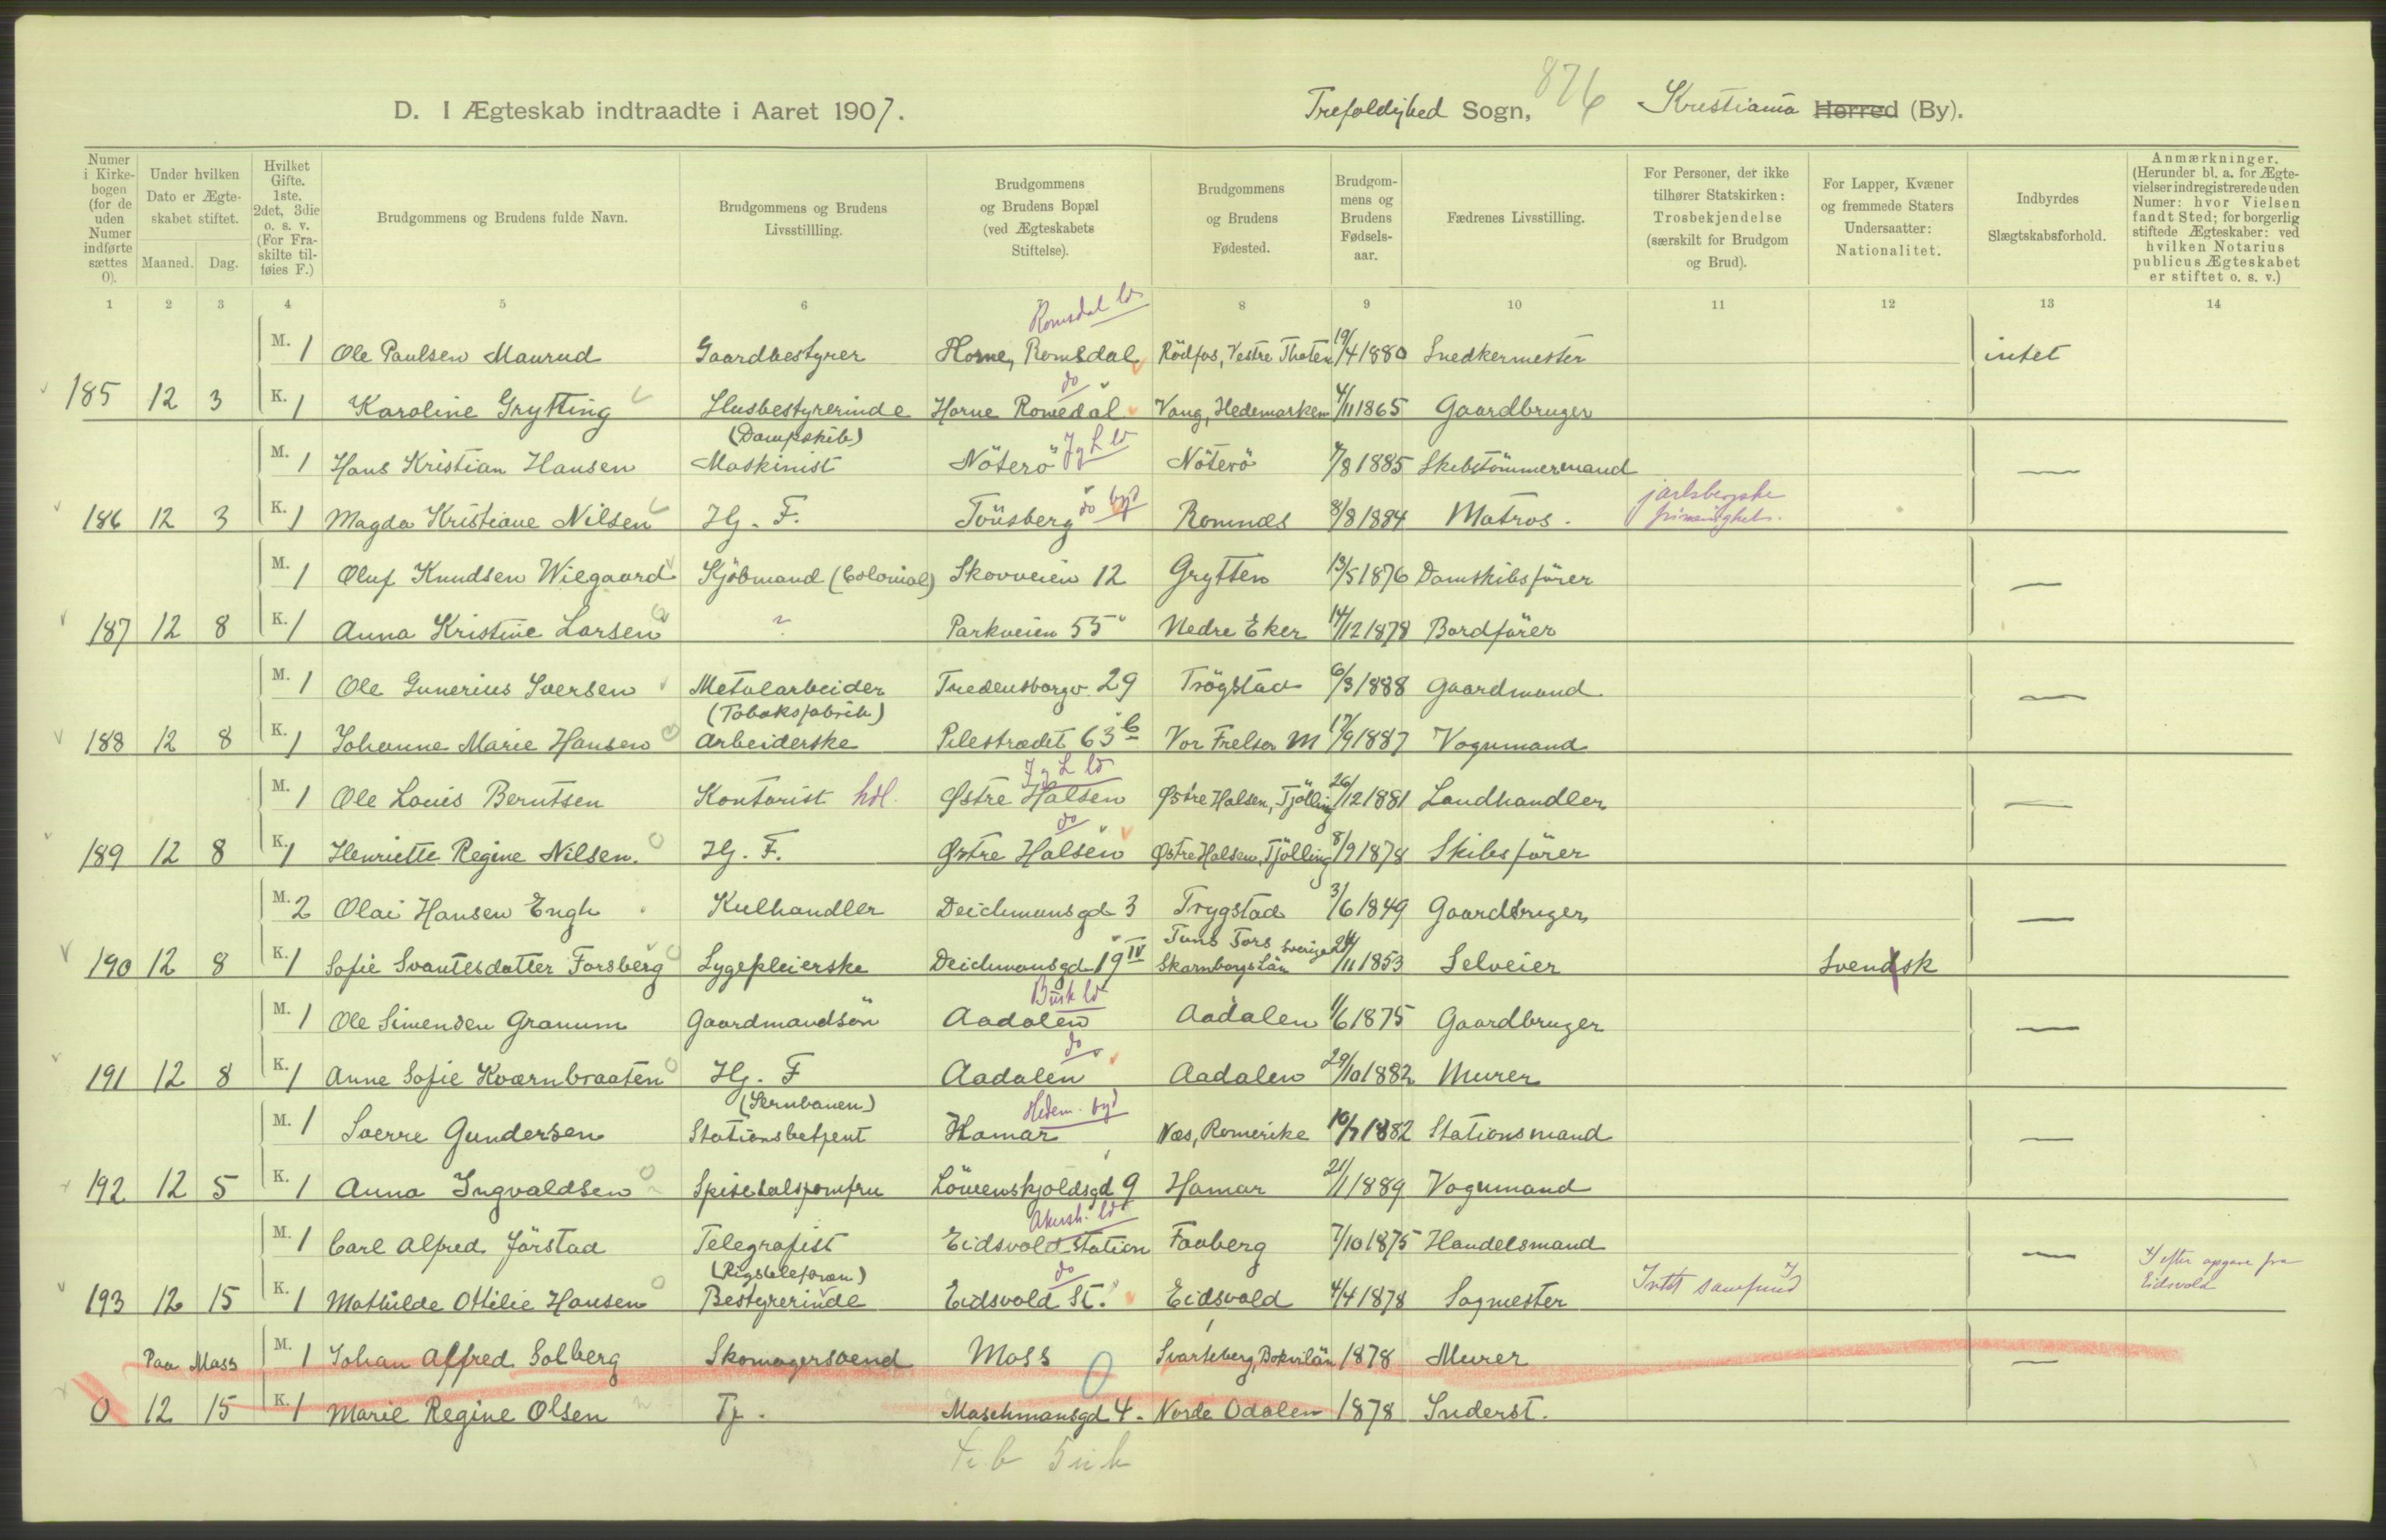 D. I Ægteskab indtraadte i Aaret 1907. Trefoldighed Sogn, 876 Kristiania Herred (By).
Numer i Kirkebogen (for de uden Numer indførte sættes 0).
Under hvilken Dato er Ægteskabet stiftet.
Maaned. Dag.
Hvilket Gifte. 1ste, 2det, 3die o. s. v. (For Fraskilte tilføies F.)
Brudgommens og Brudens fulde Navn.
Brudgommens og Brudens Livsstillling.
Brudgommens og Brudens Bopæl (ved Ægteskabets Stiftelse).
Brudgommens og Brudens Fødested.
Brudgommens og Brudens Fødselsaar.
Fædrenes Livsstilling.
For Personer, der ikke tilhører Statskirken: Trosbekjendelse (særskilt for Brudgom og Brud).
For Lapper, Kvæner og fremmede Staters Undersaatter: Nationalitet.
Indbyrdes Slægtskabsforhold.
Anmærkninger. (Herunder bl. a. for Ægtevielser indregistrerede uden Numer: hvor Vielsen fandt Sted; for borgerlig stiftede Ægteskaber: ved hvilken Notarius publicus Ægteskabet er stiftet o. s. v.)
1 2 3 4 5 6 8 9 10 11 12 13 14
Romsdal ld
M. 1 Ole Paulsen Maurud Gaardbestyrer Horne, Romsdal Rödfos, Vestre Thoten 19/4 1880 Snedkermester intet
do
185 12 3 K. 1 Karoline Grytting Husbestyrerinde Horne Romsdal Vang, Hedemarken 4/11 1865 Gaardbruger
(Dampskib) J g L ld
M. 1 Hans Kristian Hansen Maskinist Nöterö Nöterö 7/8 1885 Skibstömmermand —
do byd jarlsbergske
186 12 3 K. 1 Magda Kristiane Nilsen Hj. F. Tönsberg Ramnes 8/8 1884 Matros. frimenighet.
M. 1 Oluf Knudsen Wiegaard Kjöbmand (Colonial) Skovveien 12 Grytten 13/5 1876 Damskibsförer —
187 12 8 K. 1 Anna Kristine Larsen ? Parkveien 55 Nedre Eker 14/12 1878 Bordförer
M. 1 Ole Gunerius Iversen Metalarbeider Fredensborgv. 29 Trögstad 6/3 1888 Gaardmand —
(Tobaksfabrik)
188 12 8 K. 1 Johanne Marie Hansen Arbeiderske Pilestrædet 63 b Vor Frelser M 17/9 1887 Vognmand
J g L ld
M. 1 Ole Louis Berntsen Kontorist hdl. Østre Halsen Østre Halsen, Tjölling 26/12 1881 Landhandler —
do
189 12 8 K. 1 Henriette Regine Nilsen. Hj. F. Østre Halsen Østre Halsen, Tjölling 8/9 1878 Skibsförer
M. 2 Olai Hansen Engh Kulhandler Deichmansgd 3 Trygstad 3/6 1849 Gaardbruger —
Tuns Fors Sverige
190 12 8 K. 1 Sofie Svantesdatter Forsberg Sygepleierske Deichmansgd 19 IV Skarnborgs Län 24/11 1853 Selveier Svendsk
Busk ld
M. 1 Ole Simensen Granum Gaardmandsön Aadalen Aadalen 1/6 1875 Gaardbruger —
do
191 12 8 K. 1 Anne Sofie Kværnbraaten Hj. F Aadalen Aadalen 29/10 1882 Murer
(Jernbanen) Hedem. byd
M. 1 Sverre Gundersen Stationsbetjent Hamar Næs, Romerike 10/7 1882 Stationsmand —
192 12 5 K. 1 Anna Ingvaldsen Spisesalsjomfru Löwenskjoldsgd 9 Hamar 21/1 1889 Vognmand
Akersh. ld
M. 1 Carl Alfred Jörstad Telegrafist Eidsvold Station Faaberg 7/10 1875 Handelsmand —
(Rigstelefonen) do x) efter opgave fra
193 12 15 K. 1 Mathilde Ottilie Hansen Bestyrerinde Eidsvold St. Eidsvold 4/4 1878 Sagmester Intet samfund x) Eidsvold
Paa Mass M. 1 Johan Alfred Solberg Skomagersvend Moss Svarteberg, 1878 Murer —
0 12 15 K. 1 Marie Regine Olsen Tj. Maschmansgd 4. Nordre Odalen 1878 Inderst.